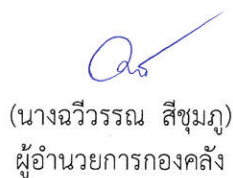 (นางฉวีวรรณ สีชุมภู)
ผู้อำนวยการกองคลัง